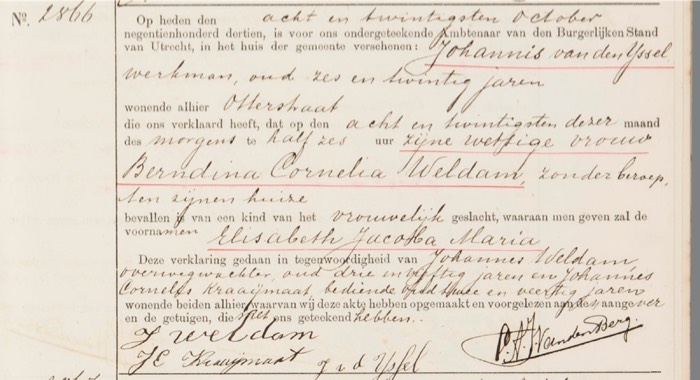 Nº. 2866
Op heden den acht en twintigsten October
negentienhonderd dertien, is voor ons ondergeteekende Ambtenaar van den Burgerlijken Stand
van Utrecht, in het huis der gemeente verschenen: Johannis van den IJssel
werkman, oud zes en twintig jaren
wonende alhier Otterstraat
die ons verklaard heeft, dat op den acht en twintigsten dezer maand
des morgens te half zes uur zijne wettige vrouw
Berndina Cornelia Weldam, zonder beroep,
ten zijnen huize
bevallen is van een kind van het vrouwelijk geslacht, waaraan men geven zal de
voornamen Elisabeth Jacoba Maria
Deze verklaring gedaan in tegenwoordigheid van Johannes Weldam,
overwegwachter, oud drie en vijftig jaren en Johannes
Cornelis Kraaijmaat, bediende oud twee en veertig jaren
wonende beiden alhier, waarvan wij deze akte hebben opgemaakt en voorgelezen aan den aangever
en de getuigen, die met ons geteekend hebben.
J Weldam
J C Kraaijmaat J v d IJssel
vandenBerg.